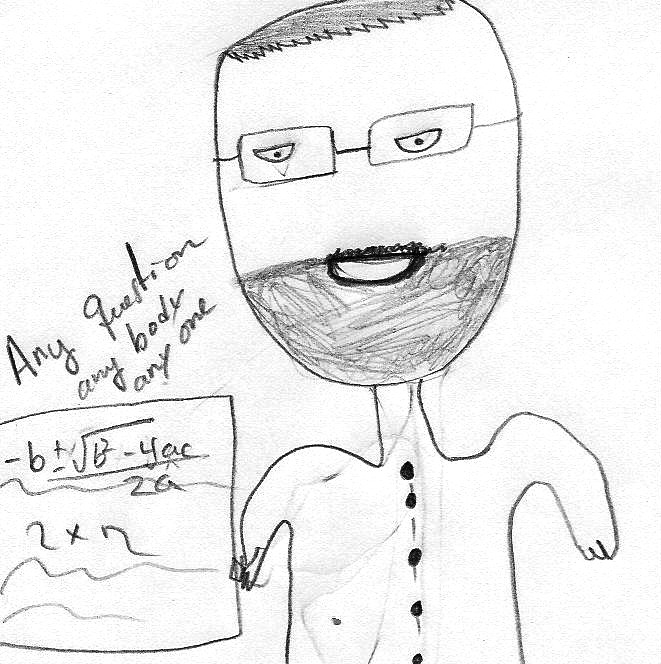 Any question
any body
any one
-b ± √b² - 4ac
2a
2 x n